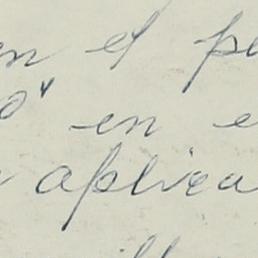 en el pe
o" en e
aplica